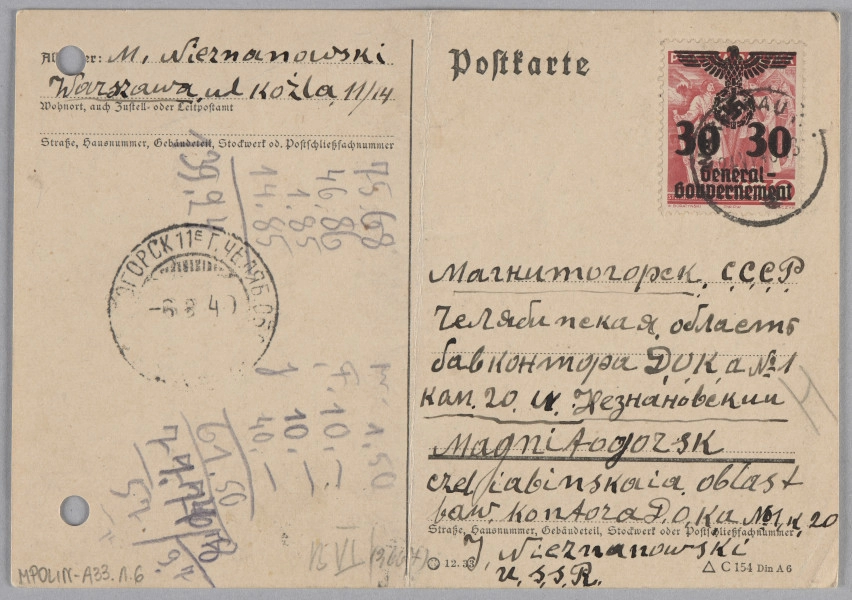 M. Nieznanowski
Warszawa, ul Koźla, 11/14
Wohnort, auch Zustell- oder Leitpostamt
Straße, Hausnummer, Gebäudeteil, Stockwerk od. Postschließfachnummer
75.68
46.86
1.85
14.85
139.24
ОГОРСК 11Е Г. ЧЕЛЯБ. ОБ
40
1,50
10.-
10.-
40.-
61.50
Postkarte
30 30
General-
Gouvernement
Магнитогорск, СССР
Челябинская, область
бавконтора Д.О.К а №1
кам. 20. И. Незнановский
Magnitogorsk
czeljabinskaia oblast
baw. kontora D.O.Ka №1 k. 20
Straße, Hausnummer, Gebäudeteil, Stockwerk oder Postschließfachnummer
J. Nieznanowski
U.S.S.R.
12.39
C 154 Din A 6
15 VI
MPOLIN-A33.1.6